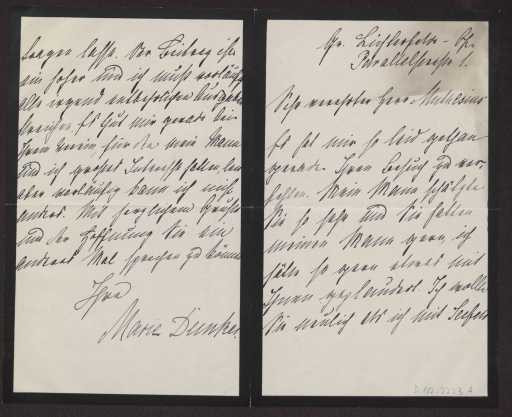 Gr. Lichterfelde - Ost.
Parallelstrasse 1.
Sehr verehrter Herr Muthesius
Es hat mir so leid gethan
gerade Ihren Besuch zu ver-
fehlen. Mein Mann schätzte
Sie so sehr und Sie hatten
meinen Mann gern, ich
hätte so gern etwas mit
Ihnen geplaudert. Ich wollte
Sie neulich als ich mit
lassen. Der Beitrag ist
ein hoher und ich muß vorläufig
alle irgend entbehrlichen Ausgaben
Es thut mir gerade bei
Ihrem Verein, für den mein Mann
und ich großes Interesse hatten, leid
aber vorläufig kann ich nicht
anders. Mit herzlichem Gruße
und der Hoffnung Sie ein
anderes Mal sprechen zu können
Ihre
Marie